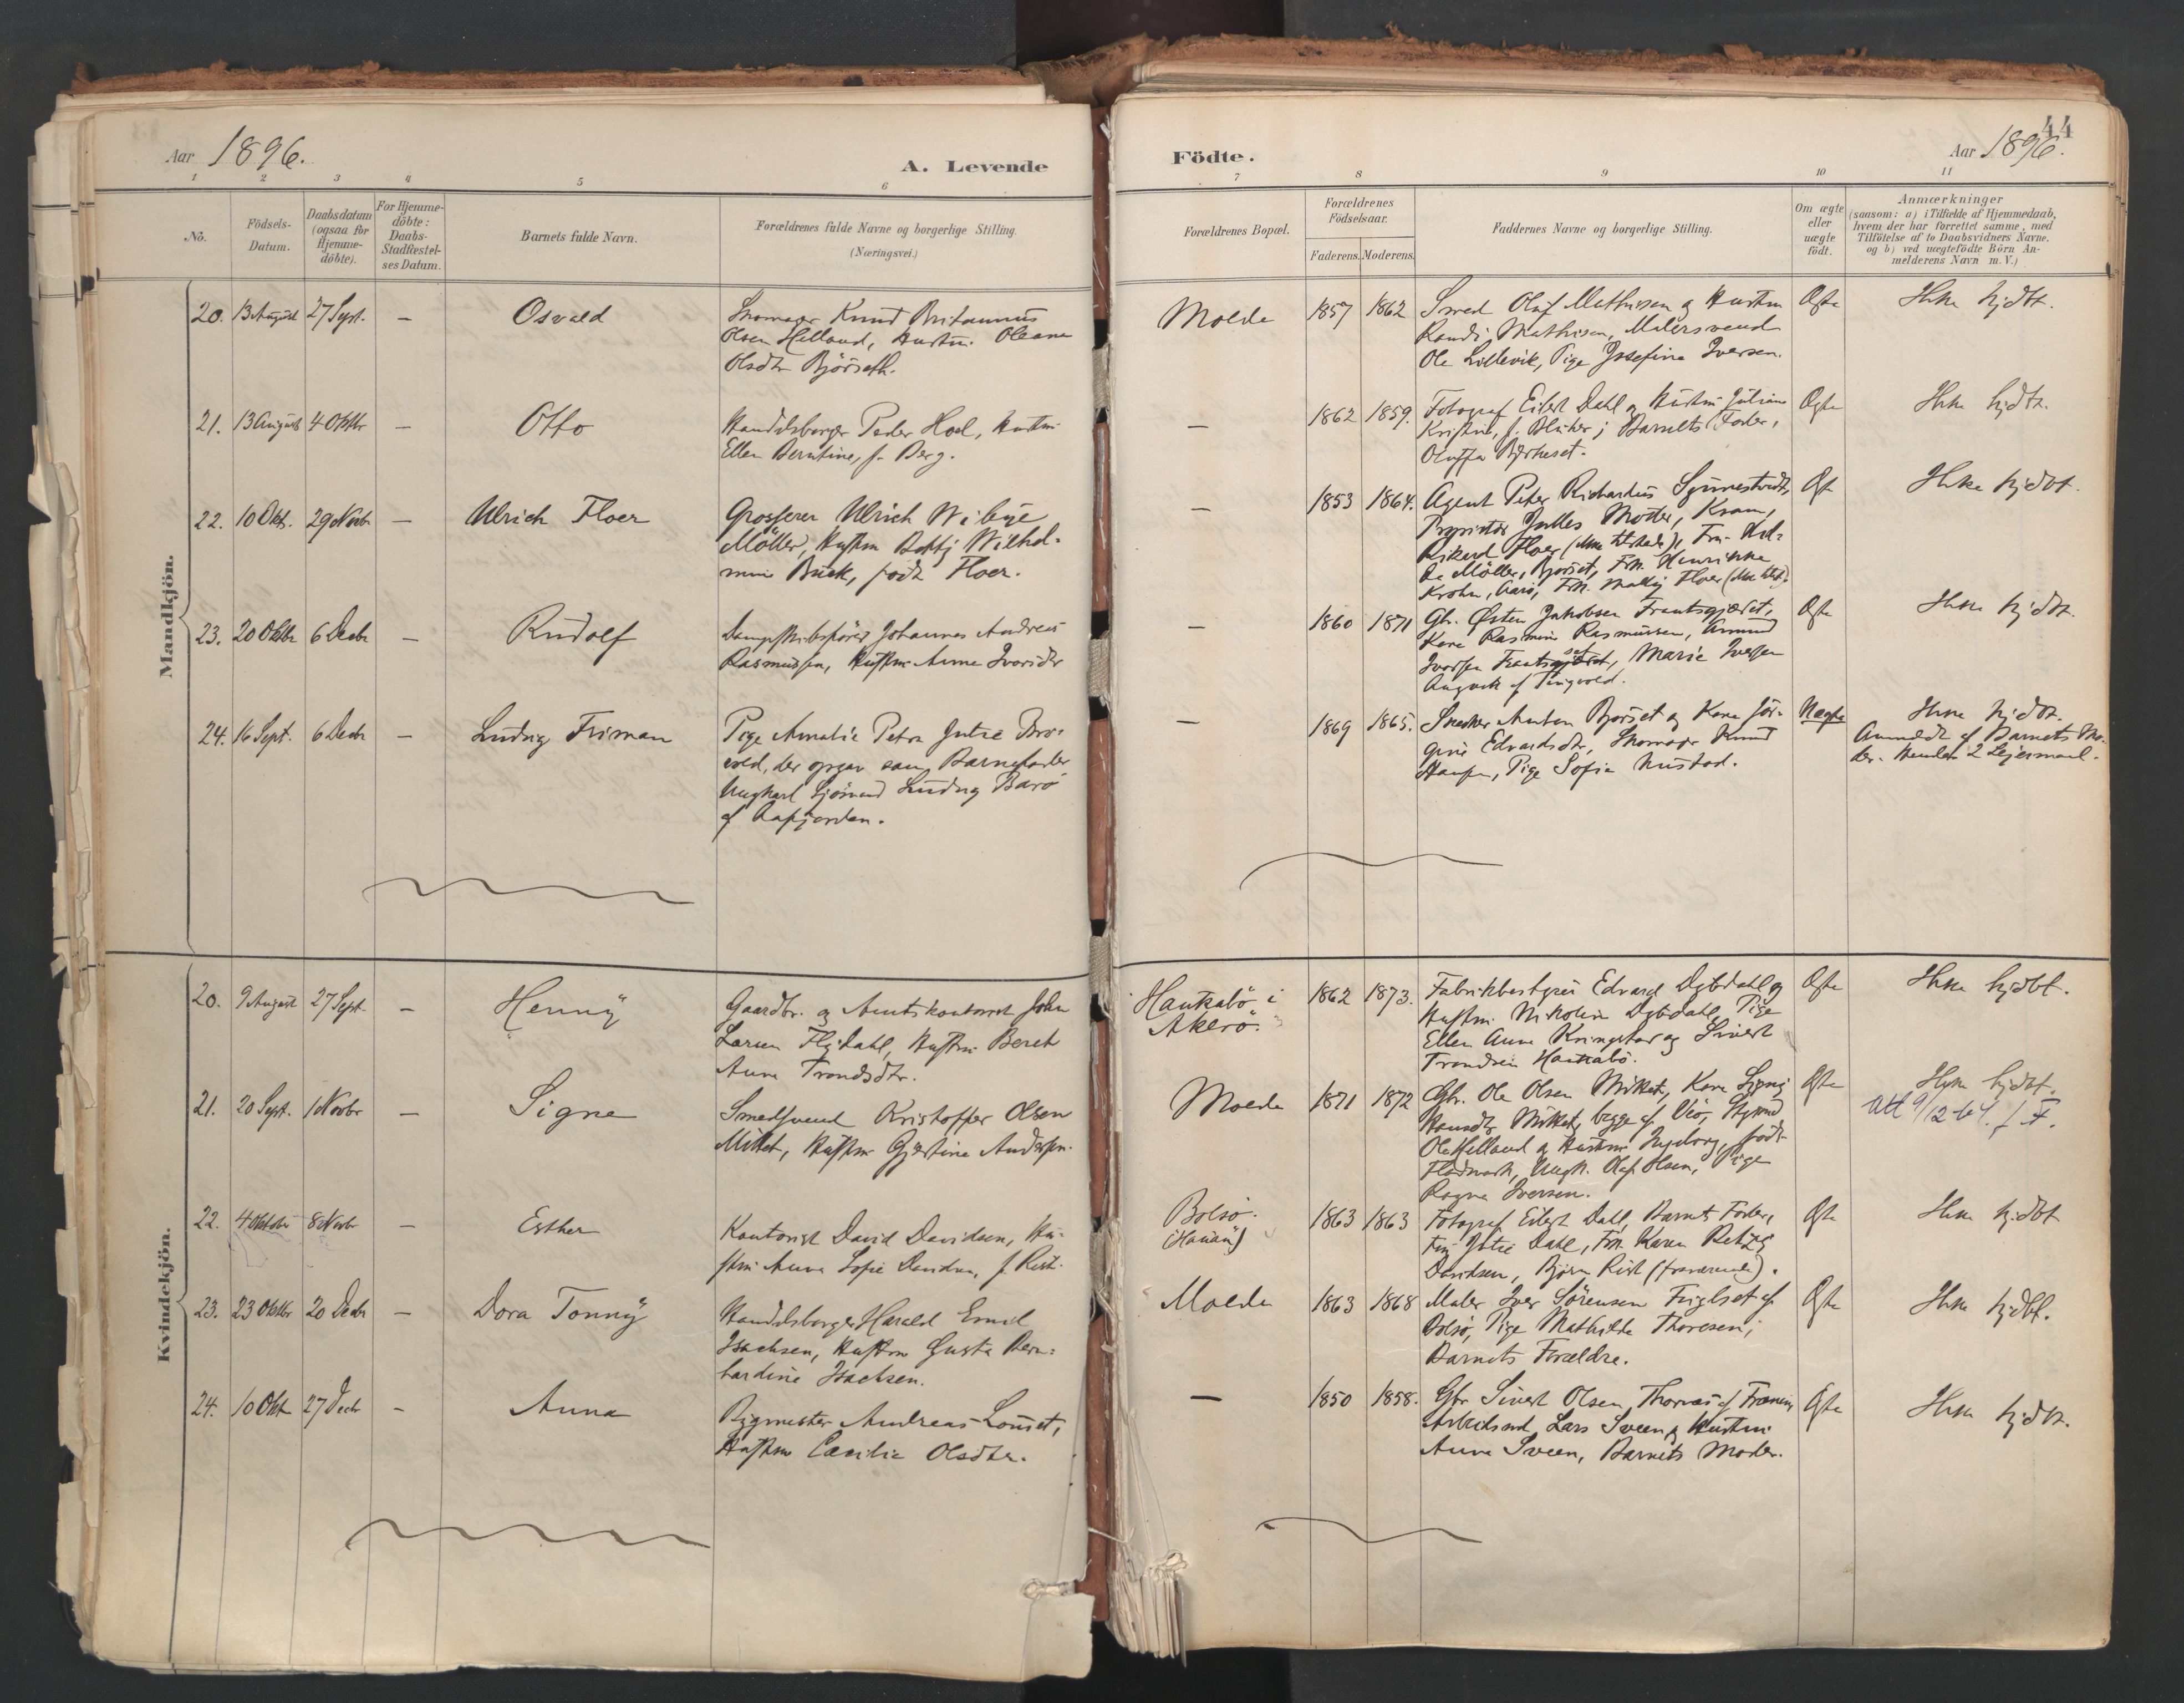 Aar 1896.
A. Levende
1 2 3 4 5 6
No.
Födsels-
Datum.
Daabsdatum
(ogsaa for
Hjemme-
döbte).
For Hjemme-
döbte:
Daabs-
Stadfæstel-
ses Datum.
Barnets fulde Navn.
Forældrenes fulde Navne og borgerlige Stilling.
(Næringsvei.)
Mandkjön.
20. 13 August 27 Sept. — Osvald
Skomager Knud Britanius
Olsen Helland, Hustru Oleane
Olsdtr Björseth.
21. 13 August 4 Oktbr — Otto
Handelsborger Peder Hoel, Hustru
Ellen Berntine, f. Berg.
22. 10 Okt. 29 Novbr — Ulrich Floer
Grosserer Ulrich Wibye
Möller, Hustru Betzy Wilhel-
mine Buck, født Floer.
23. 20 Oktbr 6 Decbr — Rudolf
Dampskibsfører Johannes Andreas
Rasmussen, Hustru Anne Iversdtr
24. 16 Sept. 6 Decbr — Ludvig Friman
Pige Amalie Petra Jutie Bro-
vold, der opgav som Barnefader
Ungkarl Sjömand Ludvig Barö
af
Kvindekjön.
20. 9 August 27 Sept. — Henny
Gaardbr. og Amtskontorist John
Larsen Flydahl, Hustru Beret
Anna Trondsdtr.
21. 20 Sept. 1 Novbr — Signe
Smedsvend Kristoffer Olsen
Mittet, Hustru Gjertine Andersen.
22. 4 Oktober 8 Novbr — Esther
Kontorist David Davidsen, Hu-
stru Anna Sofie Davidsen, f. Rist.
23. 23 Oktbr 20 Decbr — Dora Tonny
Handelsborger Harald Emil
Isachsen, Hustru Gusta Bern-
hardine Isachsen.
24. 10 Okt 27 Decbr — Anna
Bygmester Andreas Lonset,
Hustru Cecilie Olsdtr.
44
Födte.
Aar 1896.
7 8 9 10 11
Forældrenes Bopæl.
Forældrenes
Födselsaar.
Faderens. Moderens.
Faddernes Navne og borgerlige Stilling.
Om ægte
eller
uægte
födt.
Anmærkninger
(saasom: a) i Tilfælde af Hjemmedaab,
hvem der har forrettet samme, med
Tilföielse af to Daabsvidners Navne.
og b) ved uægtefödte Börn An-
melderens Navn m. V.)
Molde 1857 1862 Smed Oluf Mathisen og Hustru Ægte Ikke hjdbt.
Randi Mathisen, Malersvend
Ole Lillevik, Pige Josefine Iversen.
— 1862 1859. Fotograf Eilert Dahl og Hustru Juliane Ægte Ikke hjdbt.
Kristine, f. ; Barnets Fader,
Oluffa
— 1853 1864. Agent Peter Richardus Synnestvedt, Ægt Ikke hjdbt.
Proprietær Julles Motter,
Rikard Floer (ikke tilstede), Frk.
Möller, Bjørset, Frk. Henrikke
Krohn, Aarö, Frk. Floer (ikke tilst.)
— 1860 1871 Gbr. Østen Jakobsen Frantsgjærdet, Ægte Ikke hjdbt.
Kone Rasmine Rasmussen, Amund
Iversen Marie Iversen
Angvik af Tingvold.
— 1869 1865. Snedker Anton Bjørset og Kone Jör- Uægte Ikke hjdbt.
gine Edvardsdtr, Skomager Knud
Hansen, Pige Sofie Nustad.
Anmeldt af Barnets Mo-
der. Hendes 2 Leiermaal.
Haukabö i
Akerö. 1862 1873. Fabrikbestyrer Edvard Dybdahl og Ægte Ikke hjdbt.
Hustru Nikoline Dybdahl, Pige
Ellen Anna Kringstad og Sivert
Trondsen Haukabö.
Molde 1871 1872 Gbr. Ole Olsen Mittet, Kone Signe Ægte Ikke hjdbt.
Mittet, begge af Veö, Styrmd
Ole Helland og Hustru Ingeborg, født
Flodmark, Ungk. Olaf Olsen, Pige
Ragna Iversen.
Att 9/12 64. f. F.
Bolsö. 1863 1863 Fotograf Eilert Dahl, Barnets Fader, Ægte Ikke hjdbt
Frk Jutie Dahl, Frk. Karen Betzy
Davidsen, Björn Rist (fraværende).
Molde 1863 1868 Maler Iver Sörensen Fuglset af Ægte Ikke hjdbt.
Bolsö, Pige Mathilde Thoresen;
Barnets Forældre.
— 1850 1858. Gbr Sivert Olsen af Ægte Ikke hjdbt.
Arbeidsmd Lars Sveen og Hustru
Anna Sveen, Barnets Moder.